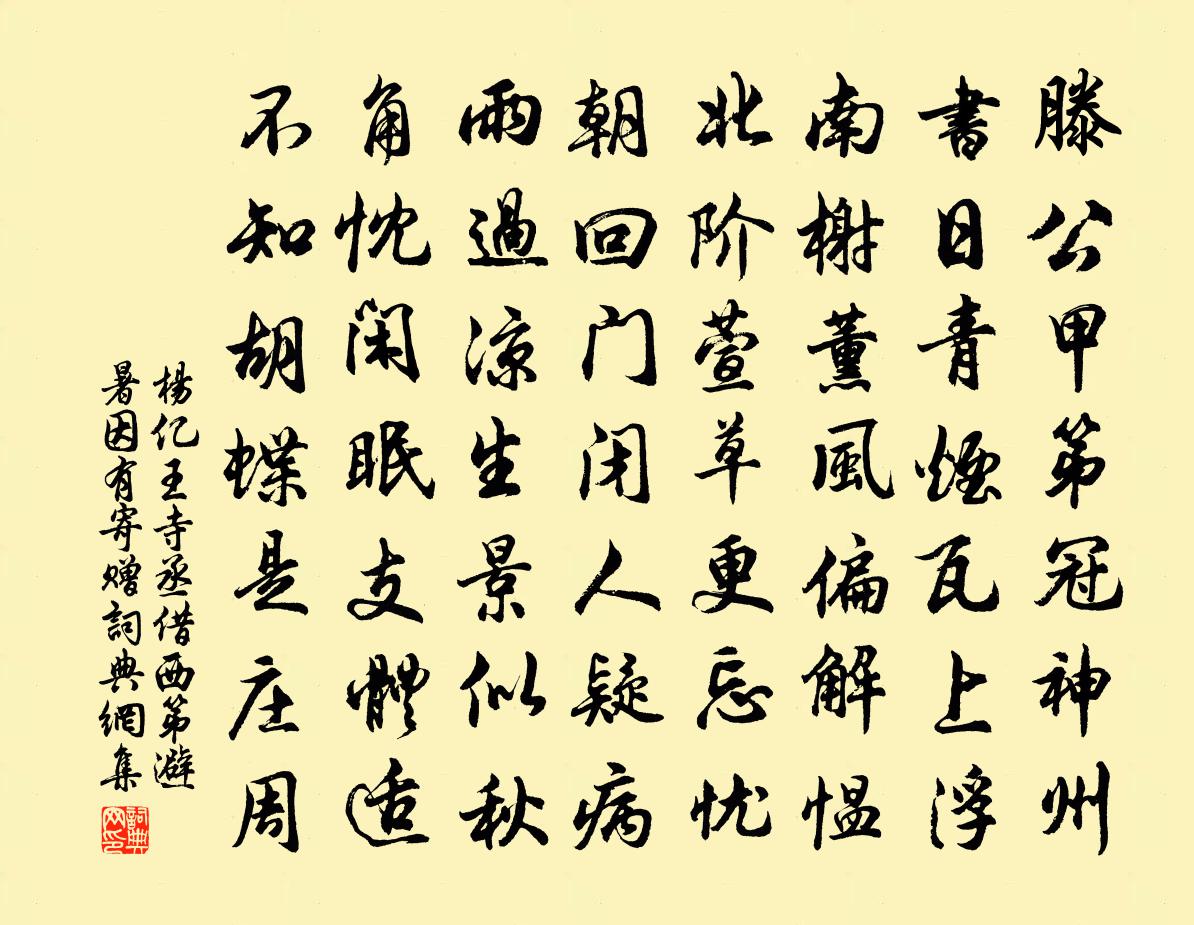 滕公甲第冠神州
書日青煙瓦上浮
南榭薰風偏解愠
北阶萱草更忘忧
朝回门闭人疑病
雨過凉生景似秋
角忱闲眠支體适
不知胡蝶是庄周
楊亿王寺丞借西第避
暑因有寄贈詞典網集
詞典
网印